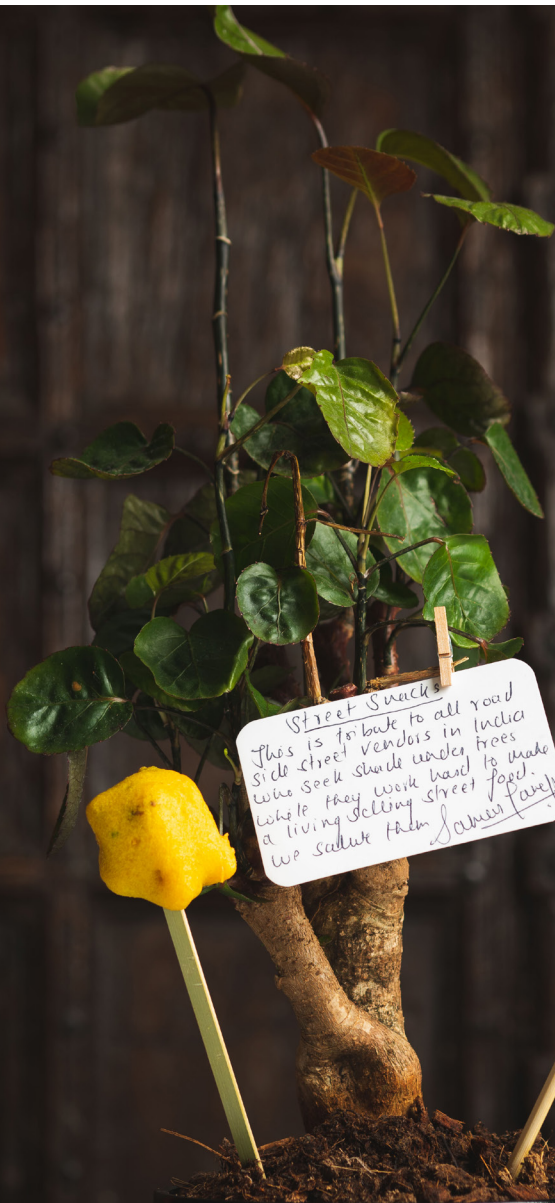 Street Snacks
This is tribute to all road
side street vendors in India
who seek shade under trees
while they work hard to make
a living selling street food.
we salute them